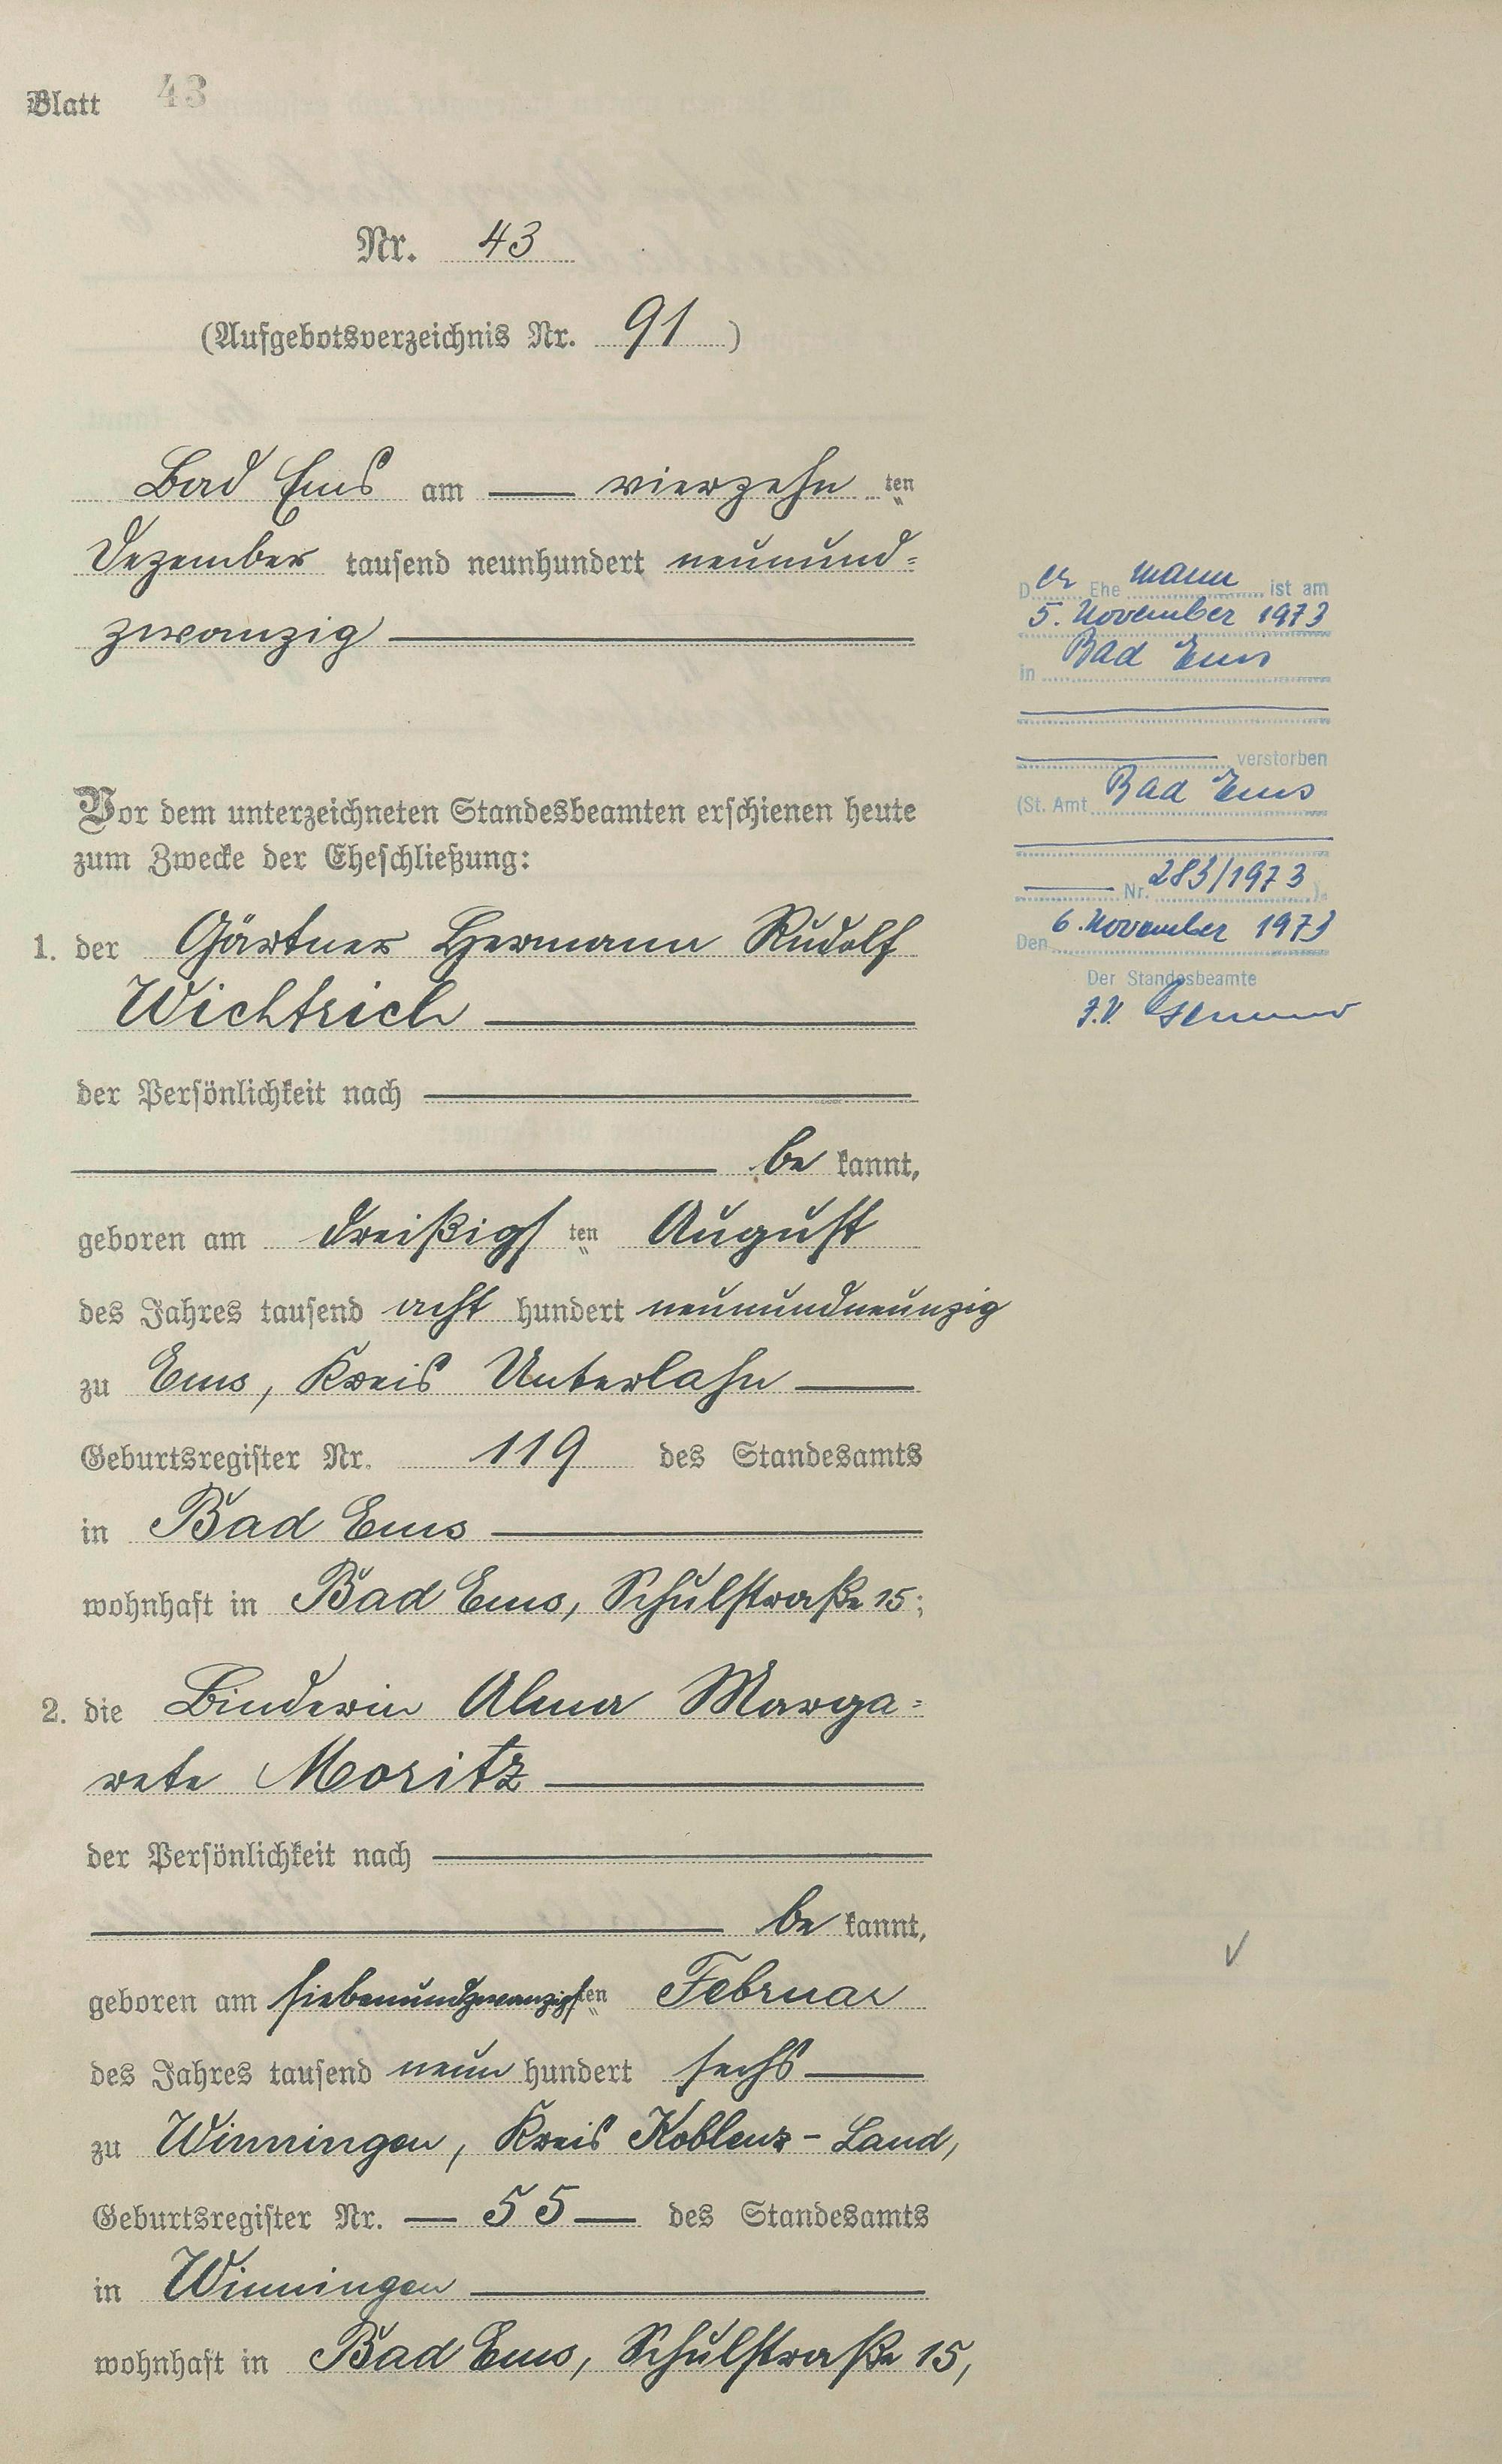 Blatt 43
Nr. 43
(Aufgebotsverzeichnis Nr. 91)
Bad Ems am — vierzehn ten
Dezember tausend neunhundert neunund=
zwanzig
Vor dem unterzeichneten Standesbeamten erschienen heute
zum Zwecke der Eheschließung:
1. der Gärtner Hermann Rudolf
Wichtrich
der Persönlichkeit nach
be kannt,
geboren am dreißigs ten August
des Jahres tausend acht hundert neunundneunzig
zu Ems, Kreis Unterlahn
Geburtsregister Nr. 119 des Standesamts
in Bad Ems
wohnhaft in Bad Ems, Schulstraße 15;
2. die Binderin Alma Marga=
rete Moritz
der Persönlichkeit nach
be kannt,
geboren am siebenundzwanzigsten Februar
des Jahres tausend neun hundert sechs
zu Winningen, Kreis Koblenz-Land,
Geburtsregister Nr. — 55 — des Standesamts
in Winningen
wohnhaft in Bad Ems, Schulstraße 15,
Der Ehemann ist am
5. November 1973
in Bad Ems
verstorben
(St. Amt Bad Ems
Nr. 283/1973).
Den 6. November 1973
Der Standesbeamte
J.V.